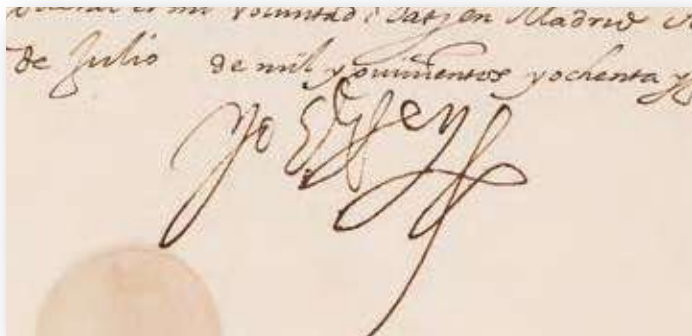 es mi voluntad Dat en Madrid
de Julio de mil y quinientos y ochenta y
Yo El Rey